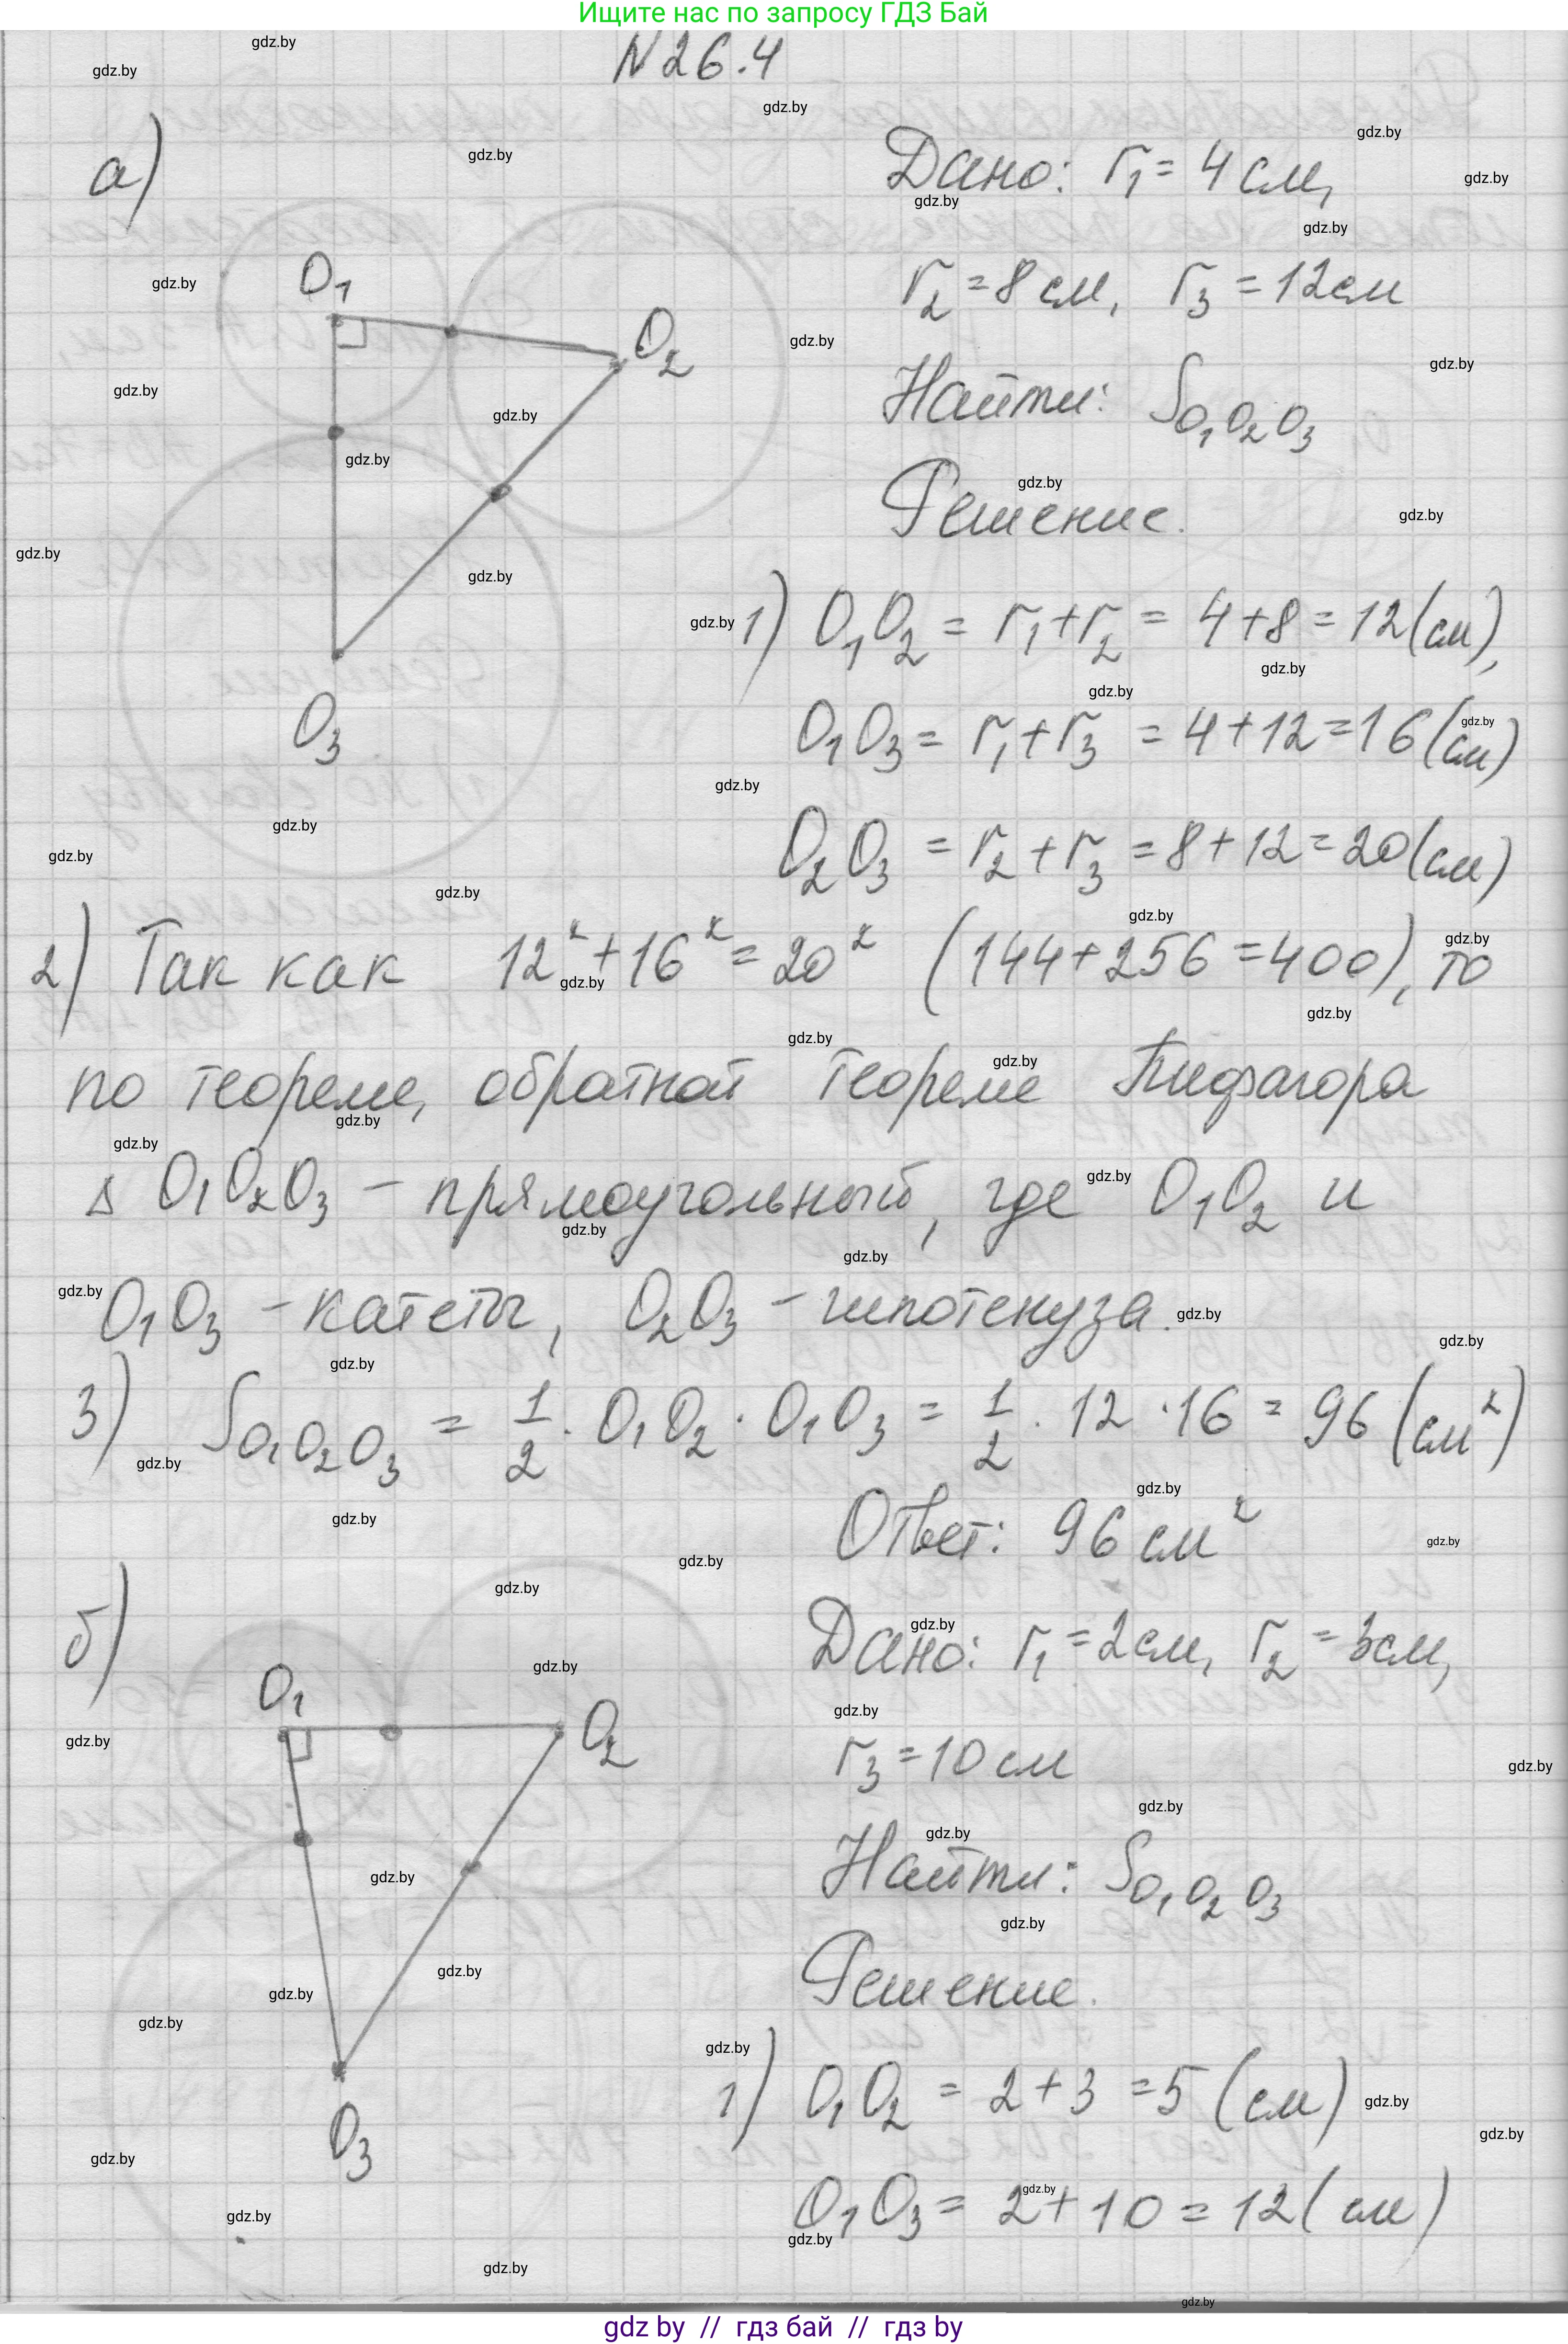 Ищите нас по запросу ГДЗ Бай
N 26.4
а)
Дано: r₁ = 4 см,
r₂ = 8 см, r₃ = 12 см
Найти: S O₁O₂O₃
Решение.
O₁
O₂
O₃
1) O₁O₂ = r₁ + r₂ = 4 + 8 = 12 (см),
O₁O₃ = r₁ + r₃ = 4 + 12 = 16 (см)
O₂O₃ = r₂ + r₃ = 8 + 12 = 20 (см)
2) Так как 12² + 16² = 20² (144 + 256 = 400), то
по теореме, обратной теореме Пифагора
Δ O₁O₂O₃ – прямоугольный, где O₁O₂ и
O₁O₃ – катеты, O₂O₃ – гипотенуза.
3) S O₁O₂O₃ = 1/2 · O₁O₂ · O₁O₃ = 1/2 · 12 · 16 = 96 (см²)
Ответ: 96 см²
б)
Дано: r₁ = 2 см, r₂ = 3 см,
r₃ = 10 см
Найти: S O₁O₂O₃
Решение.
O₁
O₂
O₃
1) O₁O₂ = 2 + 3 = 5 (см)
O₁O₃ = 2 + 10 = 12 (см)
gdz.by
gdz by // гдз бай // гдз by